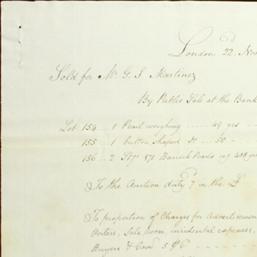 London 22 Nov
Sold for Mr G. S. Martinez
By Public Sale at the Bank
Lot 154 1 Pearl weighing .... 49 grs
155 1 button Shaped Do .. 50 -
156 2 Stgs 171 Baroque Pearls wg
To the Auction duty 7 in the £
To proportion of Charges for Advertisement
Porters, Sale room incidental expenses,
Buyers &